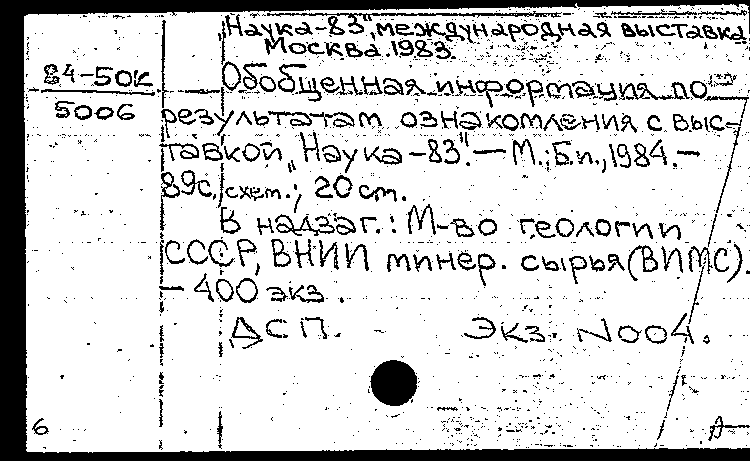 „Наука-83", международная выставка
Москва. 1983.
84-50к
5006
Обобщенная информация по
результатам ознакомления с выс-
тавкой „Наука-83".— М.; Б.и., 1984.—
89с., схем.; 20 cm.
В надзаг.: М-во геологии
СССР, ВНИИ минер. сырья (ВИМС).
— 400 экз.
ДСП. Экз. N004.
6